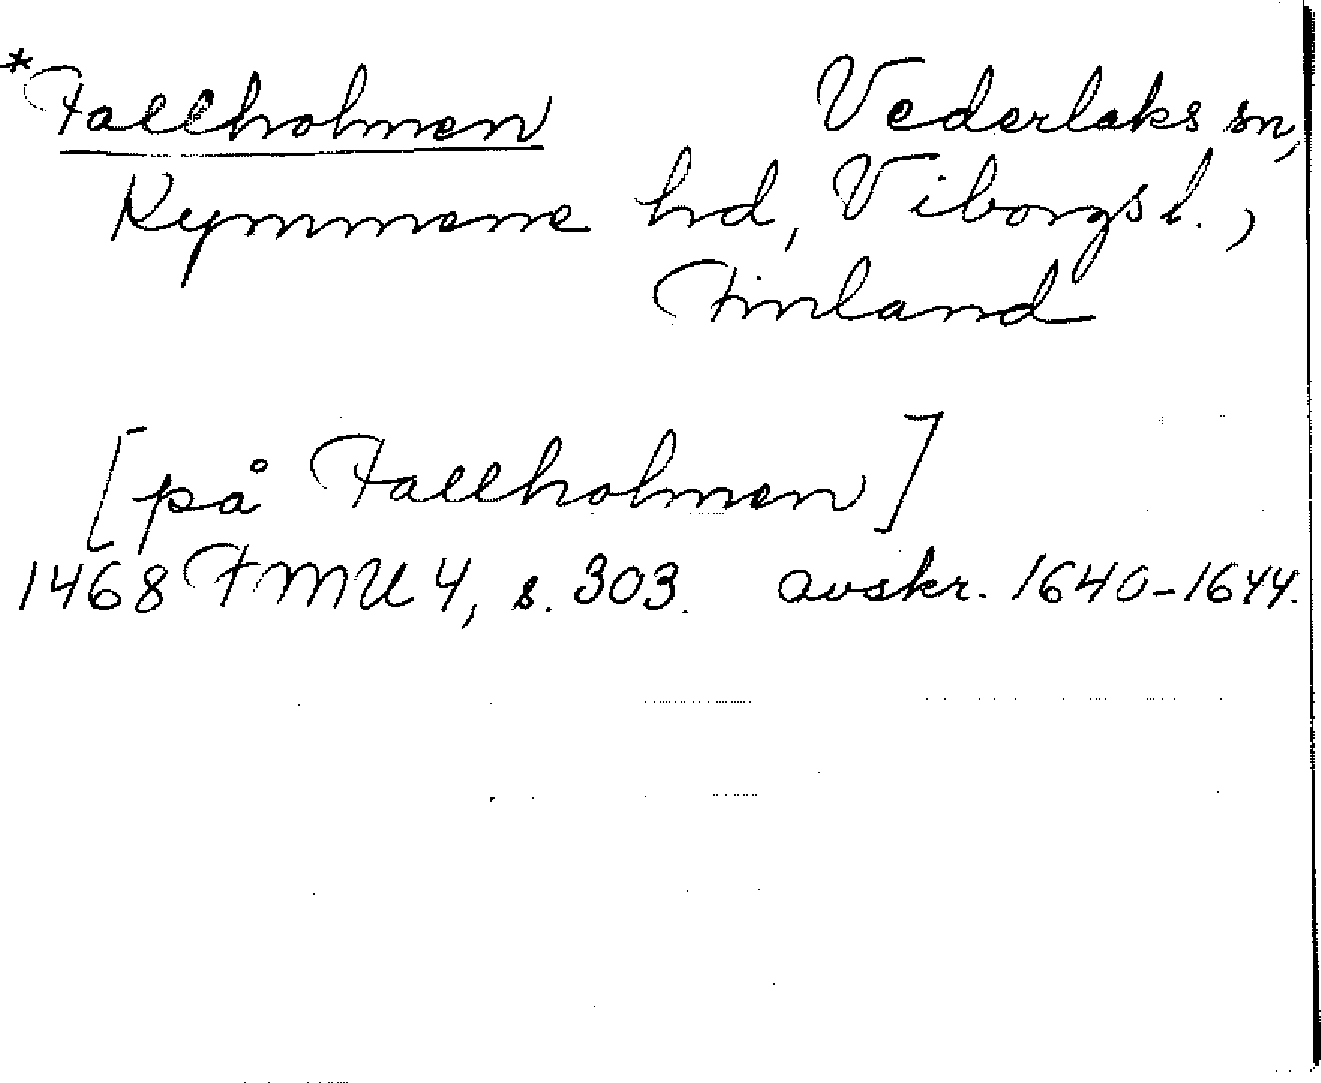 *Fallholmen Vederlaks sn,
Kymmene hd, Viborgs l.,
Finland
[på Fallholmen]
1468 FMU 4, s. 303. avskr. 1640-1644.